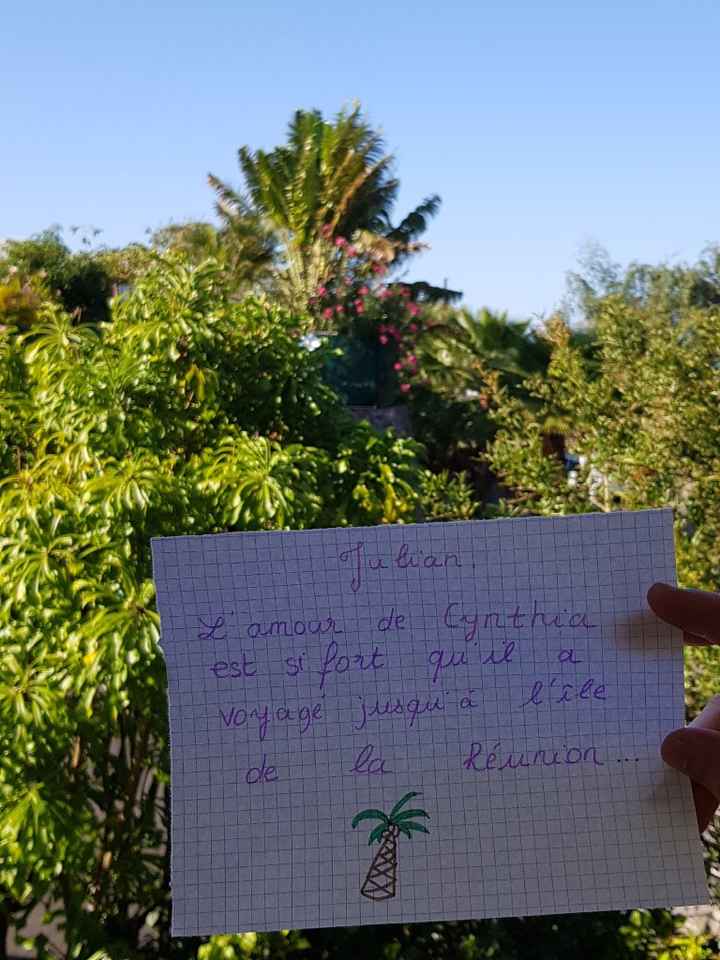 Julian,
L'amour de Cynthia
est si fort qu'il a
voyagé jusqu'à l'île
de la Réunion...